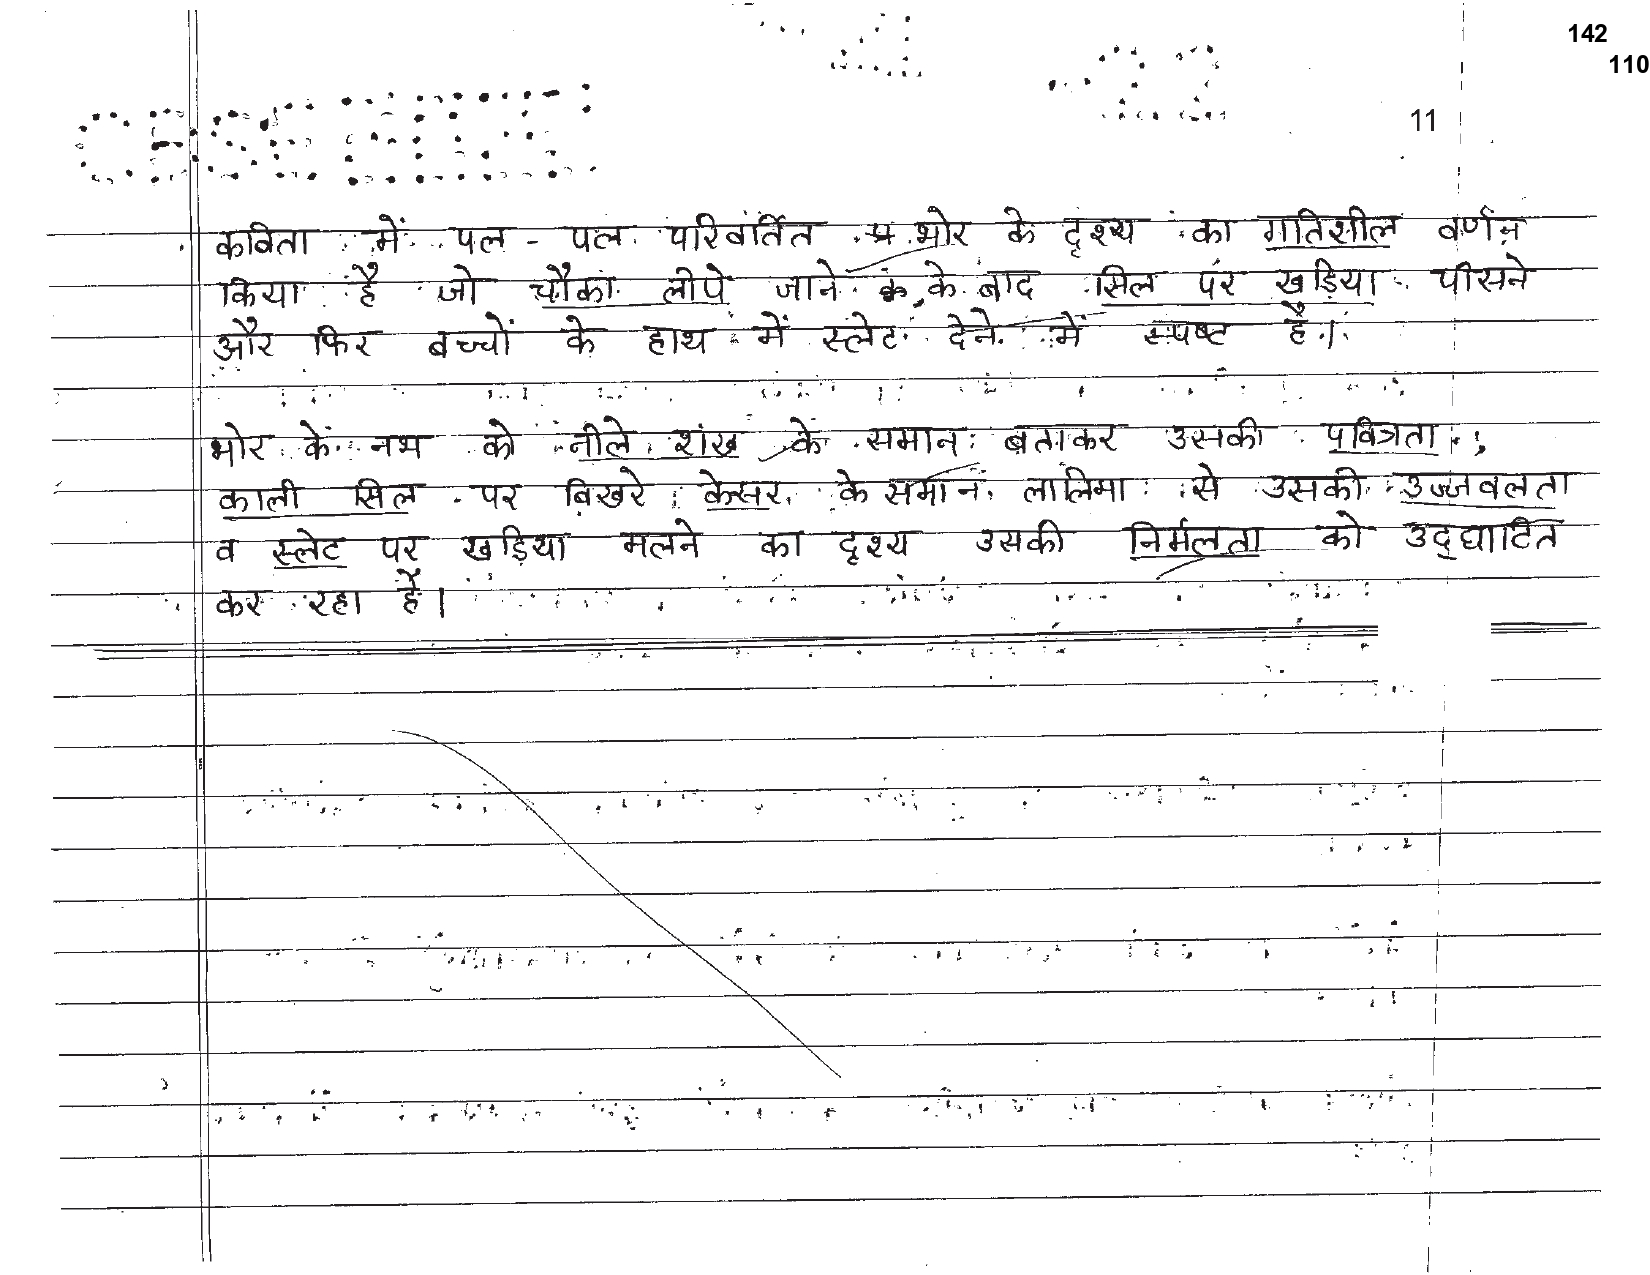 142
110
11
कविता में पल - पल परिवर्तित भोर के दृश्य का गतिशील वर्णन
किया है जो चौका लीपे जाने के बाद सिल पर खड़िया पीसने
और फिर बच्चों के हाथ में स्लेट देने में स्पष्ट है।
भोर के नभ को नीले शंख के समान बताकर उसकी पवित्रता,
काली सिल पर बिखरे केसर के समान लालिमा से उसकी उज्जवलता
व स्लेट पर खड़िया मलने का दृश्य उसकी निर्मलता को उद्घाटित
कर रहा है।